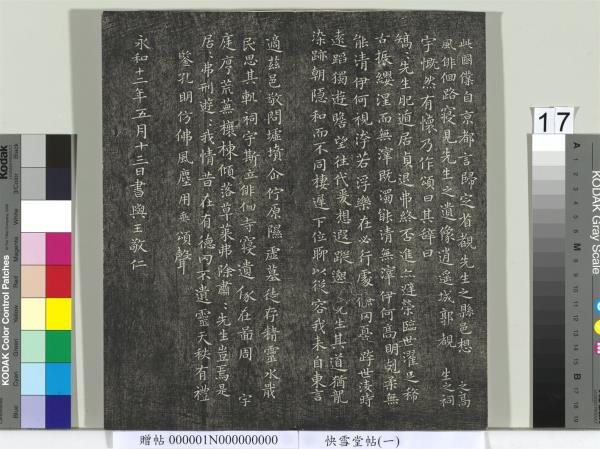 此國僕自京都言歸定省覩先生之縣邑想 之高
風俳佪路寢見先生之遺像逍遙城郭覩 生之祠
宇慨然有懷乃作頌曰其辭曰
矯先生肥遁居貞退弗終否進亦避榮臨世濯足稀
古振纓涅而無滓既濁能清無滓伊何高明剋柔無
能清伊何視洿若浮樂在必行處儉罔憂跨世淩時
遠蹈獨遊瞻望往代爰想遐蹤邈 先生其道猶龍
染跡朝隱和而不同棲遲下位聊以從容我来自東言
適茲邑敬問墟墳企佇原隰虛墓徒存精靈永戢
民思其軌祠宇斯立俳佪寺寢遺像在啚周 宇
庭序荒蕪榱棟傾落草萊弗除肅 先生豈焉是
居弗刑遊 我情昔在有德罔不遺靈天秩有禮
鑒孔明仿佛風塵用垂頌聲
永和十二年五月十三日書與王敬仁
17
KODAK Color Control Patches
Kodak
Blue
Cyan
Green
Yellow
Red
Magenta
White
Black
KODAK Gray Scale
A
M
B
贈帖 000001N000000000
快雪堂帖(一)